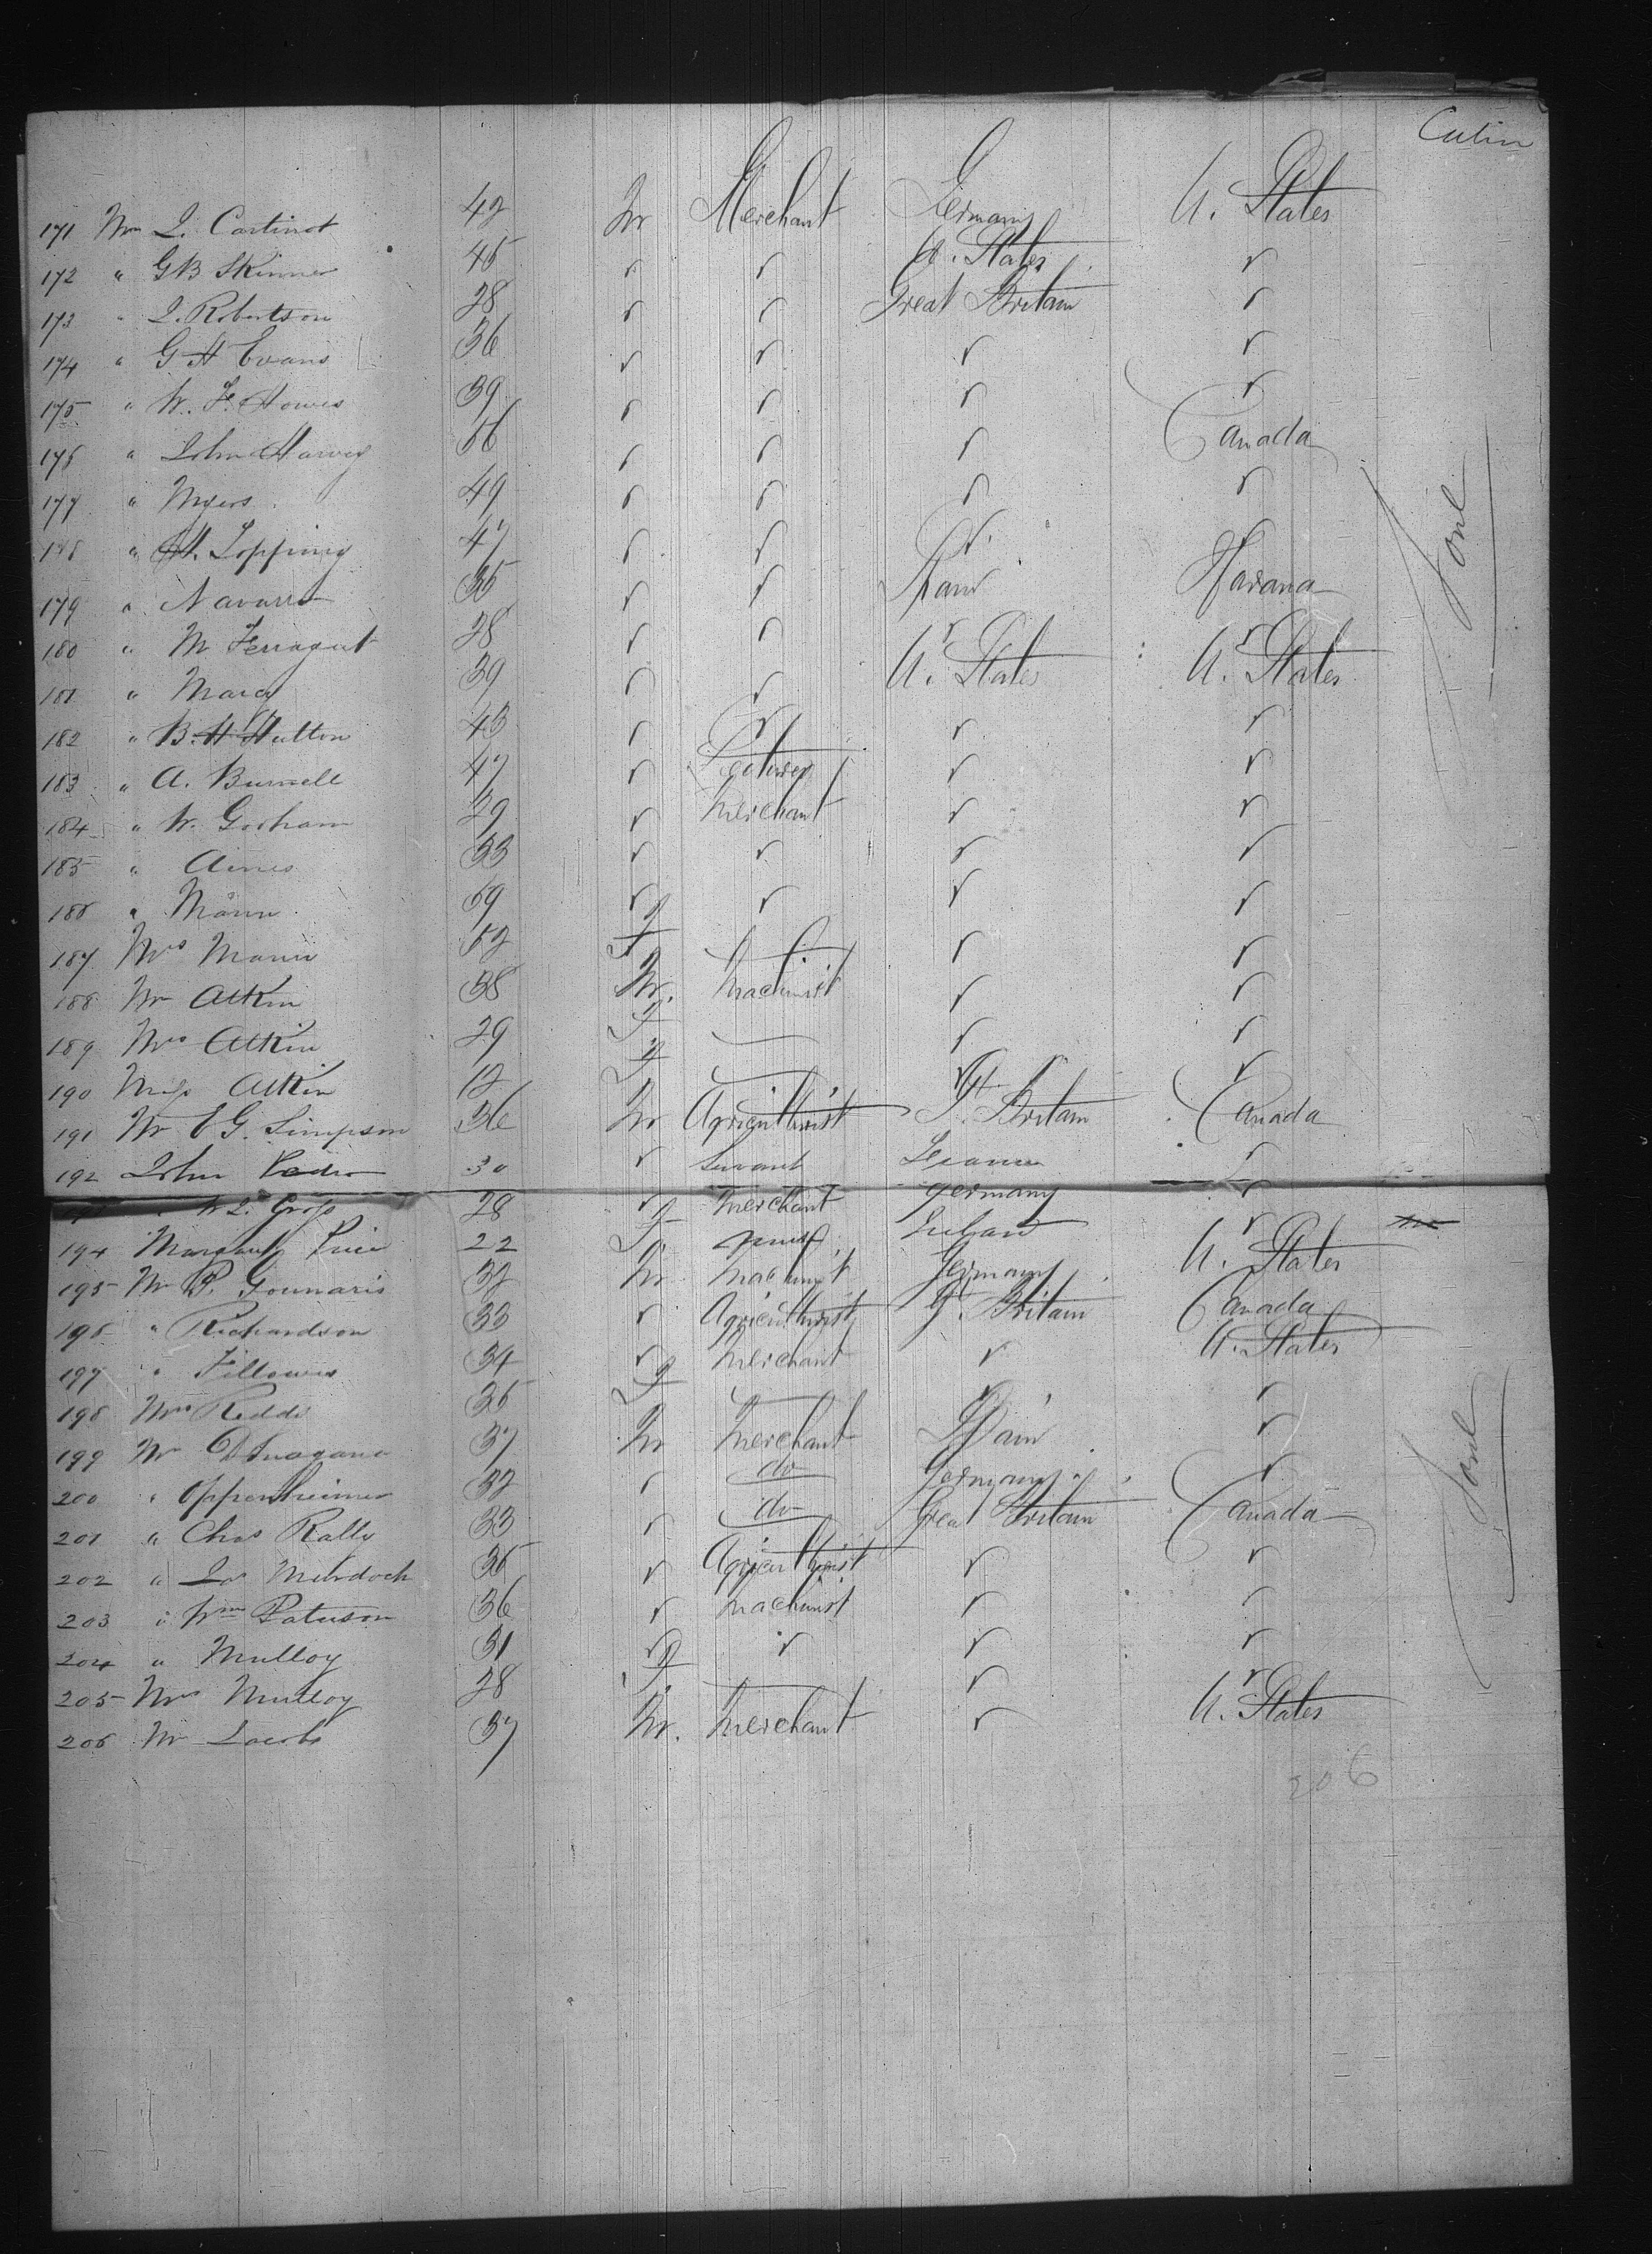 Cabin
171 Mr J. Cartinot 42 M Merchant Germany U. States
172 " G B Skinner 45 " " U. States "
173 " J. Robertson 28 " " Great Britain "
174 " G H Evans 36 " " " "
175 " W. F. Howes 39 " " " "
176 " John Harvey 56 " " " Canada
177 " Myers 49 " " " "
178 " H. Topping 47 " " "
179 " Navarro 35 " " Spain Havana
180 " M Ferragut 28 " " " "
181 " Marcy 39 " " U. States U. States
182 " B. H Hutton 43 " " " "
183 " A. Burnell 47 " " "
184 " W. Gorham 29 " Merchant " "
185 " Aimes 33 " " " "
186 " Mann 69 " " " "
187 Mrs Mann 52 F — " "
188 Mr Atkin 38 M. Machinist " "
189 Mrs Atkin 29 F — " "
190 Miss Atkin 12 F — " "
191 Mr E G. Simpson 36 M Agriculturist Gt. Britain Canada
192 John Pedro 30 " Servant "
" W L. Gross 28 " Merchant Germany "
194 Margaret Price 22 F Ireland "
195 Mr P. Gounaris 32 M Machinist Germany U. States
196 " Richardson 33 " Agriculturist Gt. Britain Canada
197 " Fellowes 34 " Merchant " U. States
198 Mrs Redde 35 F — " "
199 Mr 37 M Merchant Spain "
200 " Oppenheimer 32 " do Germany "
201 " Chas Rally 33 " do Great Britain Canada
202 " Jas Murdoch 35 " Agriculturist " "
203 " Wm Paterson 36 " Machinist " "
204 " Mulloy 31 " " " "
205 Mrs Mulloy 28 F — " "
206 Mr Jacobs 37 M. Merchant " U. States
206